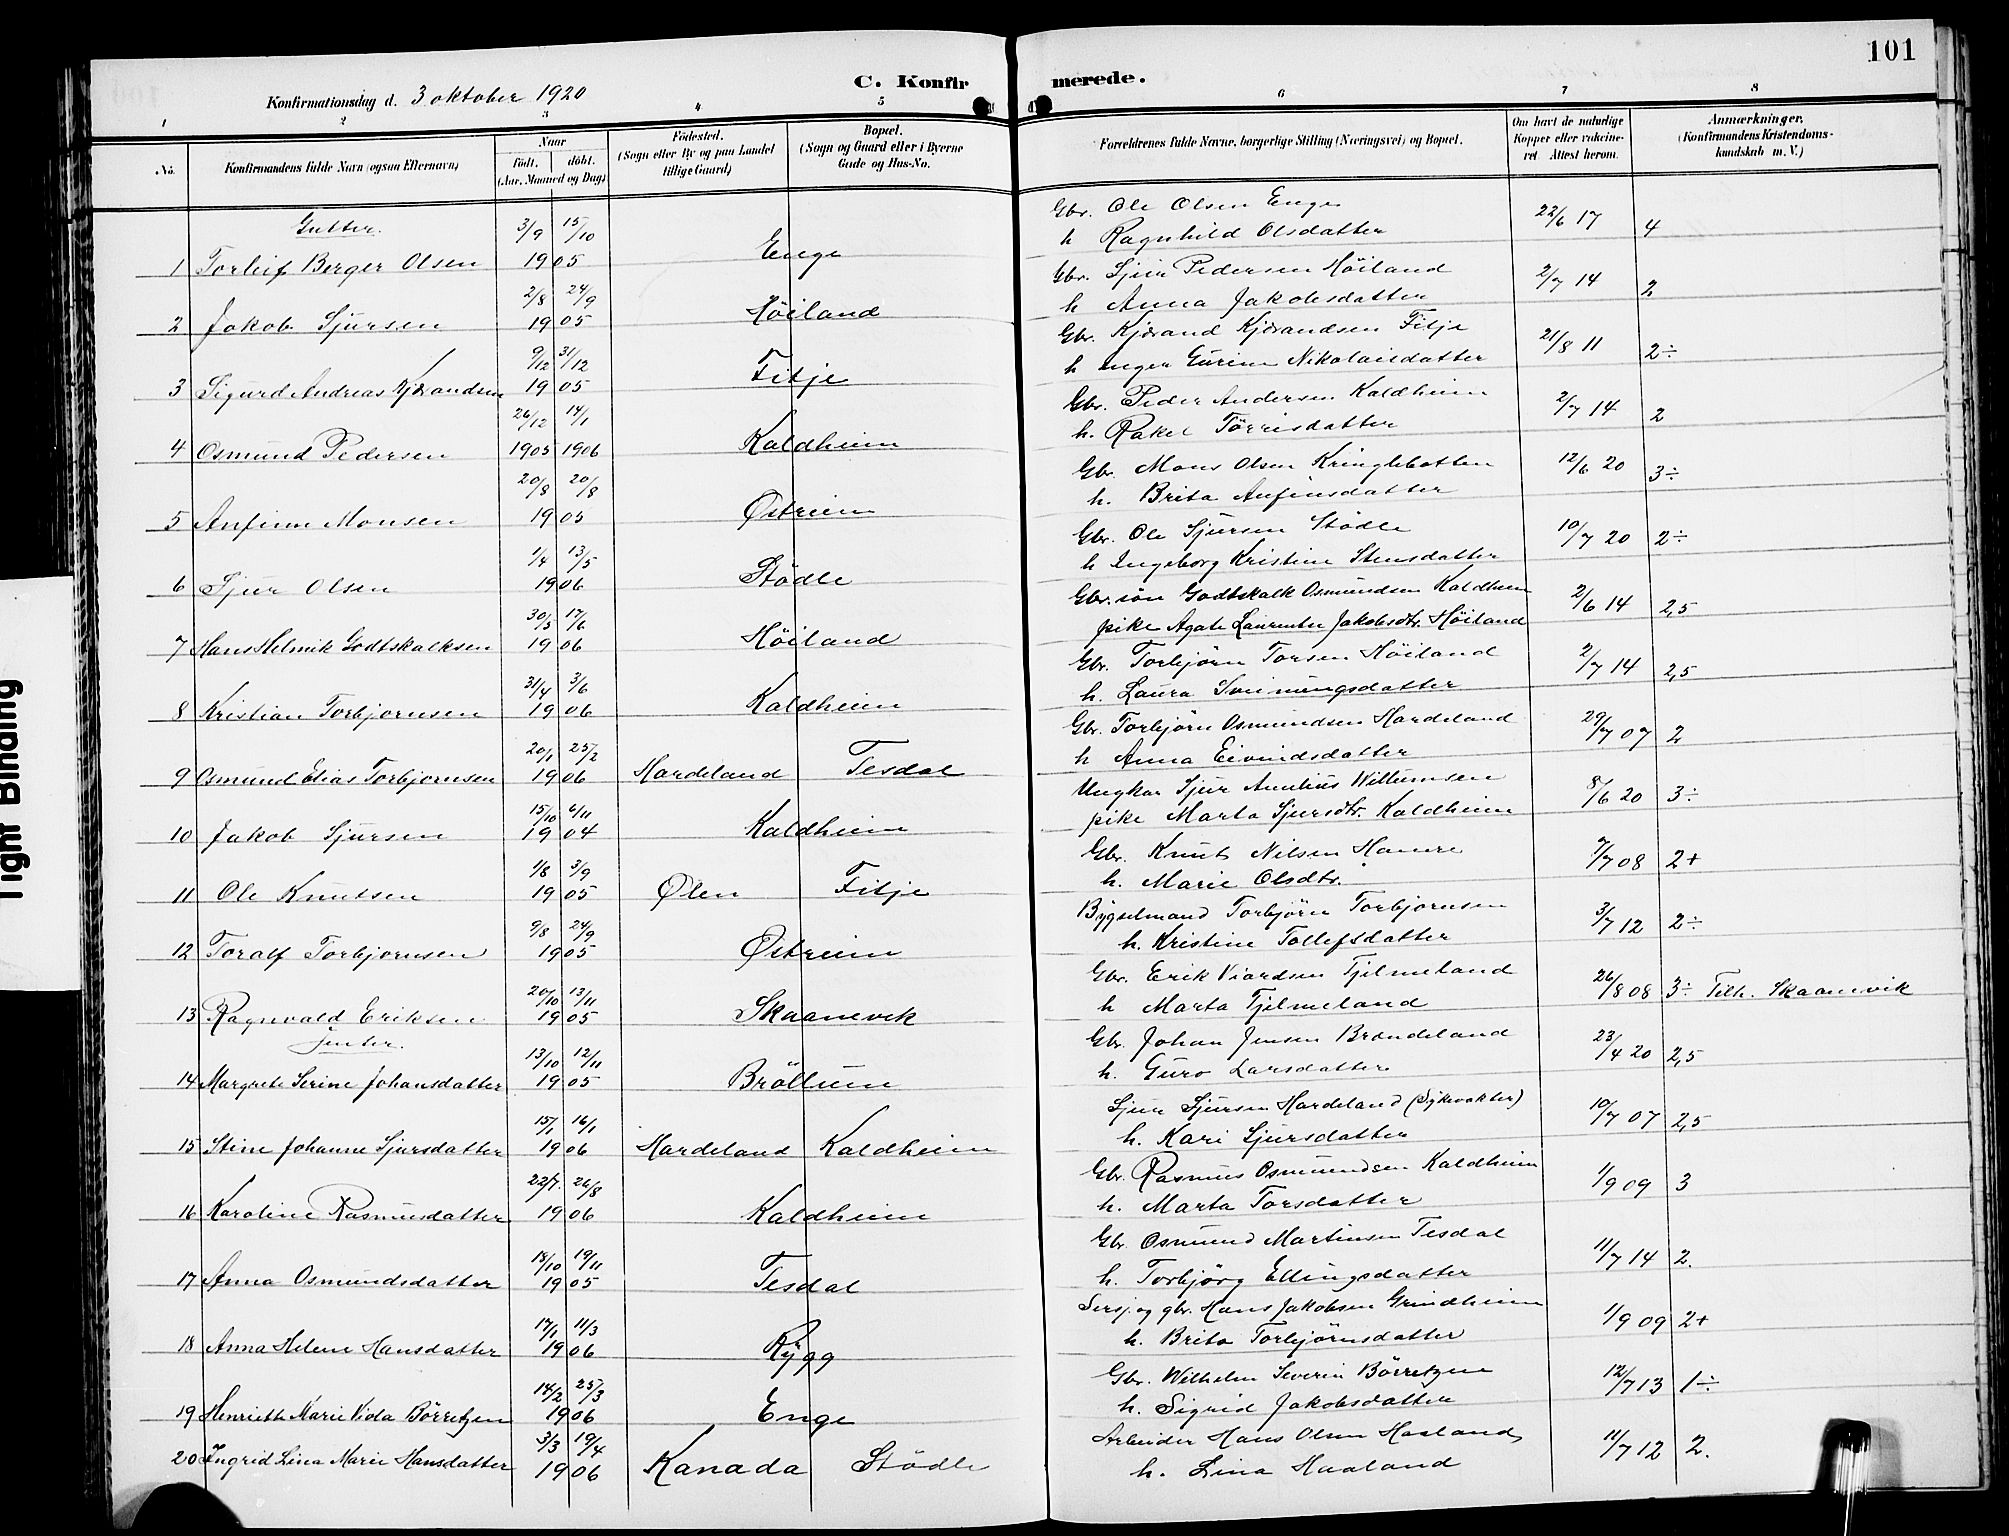 101
C. Konfirmerede.
Konfirmationsdag d. 3 oktober 1920
1 2 3 4 5 6 7 8
No. Konfirmandens fulde Navn (ogsaa Efternavn) Naar født. døbt. (Aar, Maaned og Dag) Fødested. (Sogn eller By og paa Landet tillige Gaard) Bopæl. (Sogn og Gaard eller i Byerne Gade og Hus-No. Forældrenes fulde Navne, borgerlige Stilling (Næringsvei) og Bopæl. Om havt de naturlige Kopper eller vakcineret Attest herom. Anmærkninger. (Konfirmandens Kristendomskundskab m. V.)
Gutter.
1 Torleif Berger Olsen 3/9 15/10 1905 Enge Gbr. Ole Olsen Enge
h Ragnhild Olsdatter 22/6 17 4
2 Jakob Sjursen 2/8 24/9 1905 Höiland Gbr. Sjur Pedersen Höiland
h Anna Jakobsdatter 2/7 14 2
3 Sigurd Andreas Kjærandsen 9/12 31/12 1905 Fitje Gbr. Kjærand Kjærandsen Fitje
h Inger Gurine Nikolaisdatter 21/8 11 2÷
4 Osmund Pedersen 26/12 1905 14/1 1906 Kaldheim Gbr. Peder Andersen Kaldheim
h. Rakel Tørrisdatter 2/7 14 2
5 Anfinn Monsen 20/8 20/8 1905 Østreim Gbr. Mons Olsen Kringlebotten
h. Brita Anfinsdatter 12/6 20 3÷
6 Sjur Olsen 1/4 13/5 1906 Stödle Gbr. Ole Sjursen Stödle
h Ingeborg Kristine Stensdatter 10/7 20 2÷
7 Hans Helmik Godtskalksen 30/5 17/6 1906 Höiland Gbr. sön Godtskalk Osmundsen Kaldheim
pike Agate Laurentse Jakobsdtr. Höiland 2/6 14 2,5
8 Kristian Torbjornsen 31/4 3/6 1906 Kaldheim Gbr. Torbjörn Torsen Höiland
h. Laura Sveinungsdatter 2/7 14 2,5
9 Osmund Elias Torbjornsen 20/1 25/2 1906 Hardeland Tesdal Gbr. Torbjörn Osmundsen Hardeland
h Anna Eivindsdatter 29/7 07 2
10 Jakob Sjursen 15/10 6/11 1904 Kaldheim Ungkar Sjur Amelius Willumsen
pike Marta Sjursdtr. Kaldheim 8/6 20 3÷
11 Ole Knutsen 1/8 3/9 1905 Ølen Fitje Gbr. Knut Nilsen Hamre
h. Marie Olsdtr. 7/7 08 2+
12 Toralf Torbjornsen 9/8 24/9 1905 Østreim Bygselmand Torbjörn Torbjornsen
h. Kristine Tollefsdatter 3/7 12 2÷
13 Ragnvald Eriksen 20/10 13/11 1905 Skaanevik Gbr. Erik Viardsen Tjelmeland
h Marta Tjelmeland 26/8 08 3÷ Tilh. Skaanevik
Jenter.
14 Margrete Serine Johansdatter 13/10 12/11 1905 Bröllum Gbr. Johan Jensen Brandeland
h. Guro Larsdatter 23/4 20 2,5
15 Stine Johanne Sjursdatter 15/1 16/1 1906 Hardeland Kaldheim Sjur Sjursen Hardeland (Sykevokter)
h. Kari Sjursdatter 10/7 07 2,5
16 Karoline Rasmusdatter 22/7. 26/8 1906 Kaldheim Gbr. Rasmus Osmundsen Kaldheim
h. Marta Torsdatter 1/9 09 3
17 Anna Osmundsdatter 18/10 19/11 1905 Tesdal Gbr. Osmund Martinsen Tesdal
h. Torbjörg Ellingsdatter 11/7 14 2.
18 Anna Helene Hansdatter 17/1 11/3 1906 Rygg Sersj. og gbr. Hans Jakobsen Grindheim
h. Brita Torbjörnsdatter 1/9 09 2+
19 Henriette Marie Vida Börretzen 14/2 25/3 1906 Enge Gbr. Wilhelm Severin Börretzen
h. Sigrid Jakobsdatter 12/7 13 1÷
20 Ingrid Lina Marie Hansdatter 3/3 19/4 1906 Kanada Stödle Arbeider Hans Olsen Haaland
h. Lina Haaland 11/7 12 2.
Tight Binding